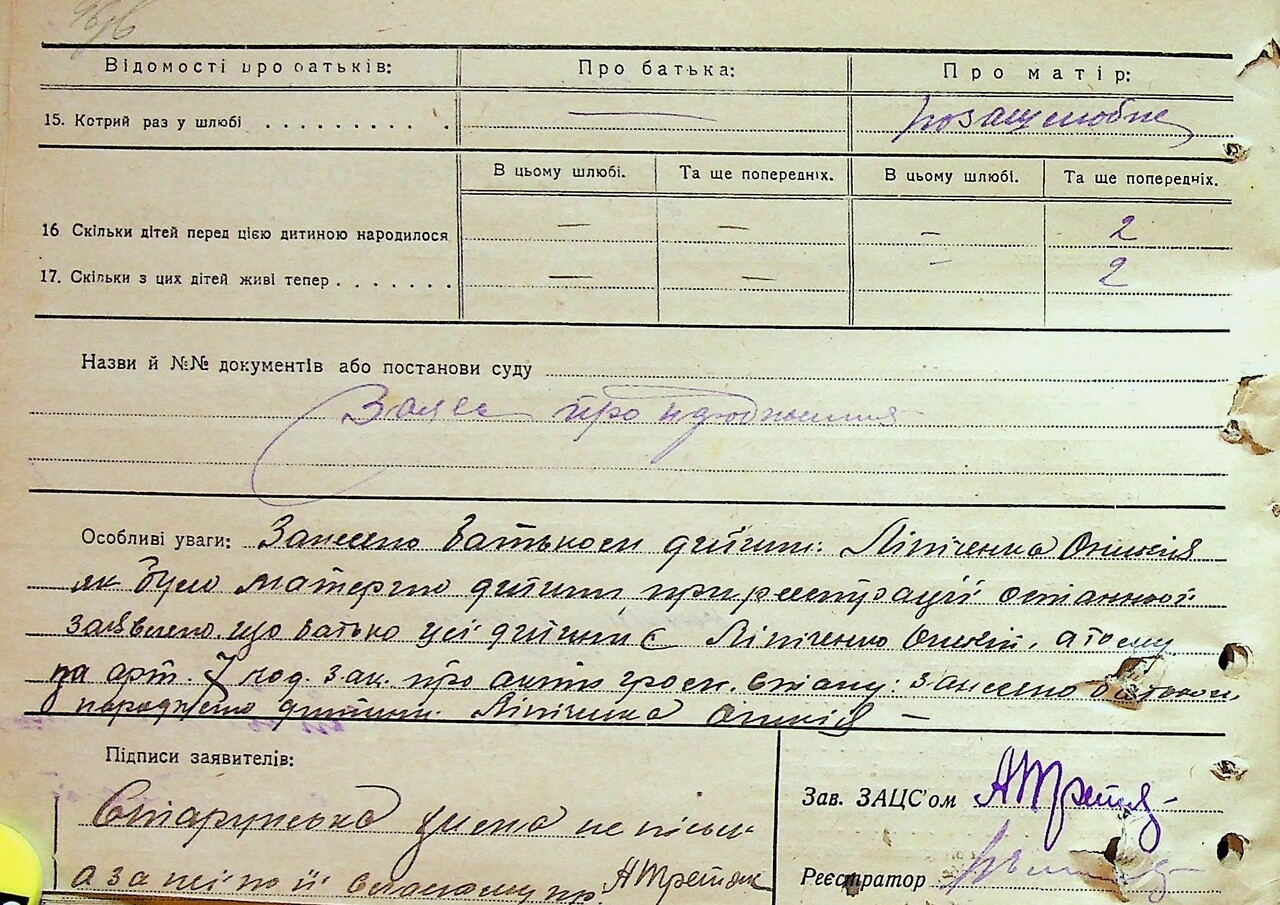 Відомості про батьків: Про батька: Про матір:
15. Котрий раз у шлюбі . . . . . . . . . . . — позашлюбне
В цьому шлюбі. Та ще попередніх. В цьому шлюбі. Та ще попередніх.
16 Скільки дітей перед цією дитиною народилося — — – 2
17. Скільки з цих дітей живі тепер . . . . . . . — — – 2
Назви й №№ документів або постанови суду
Заява про
Особливі уваги: Занесено батьком дитини: Ліпіченка
як було матерью дитини, при реєстрації останньої
заявлено, що батько цієї дитини є Ліпіченко а тому
на арт. 7 код. зак. про акти гром. стану: занесено батьком
дитини. Ліпіченка
Підписи заявителів:
Зав. ЗАЦС'ом АТретяк
не письм.
а за неї по її власному пр. АТретяк
Реєстратор